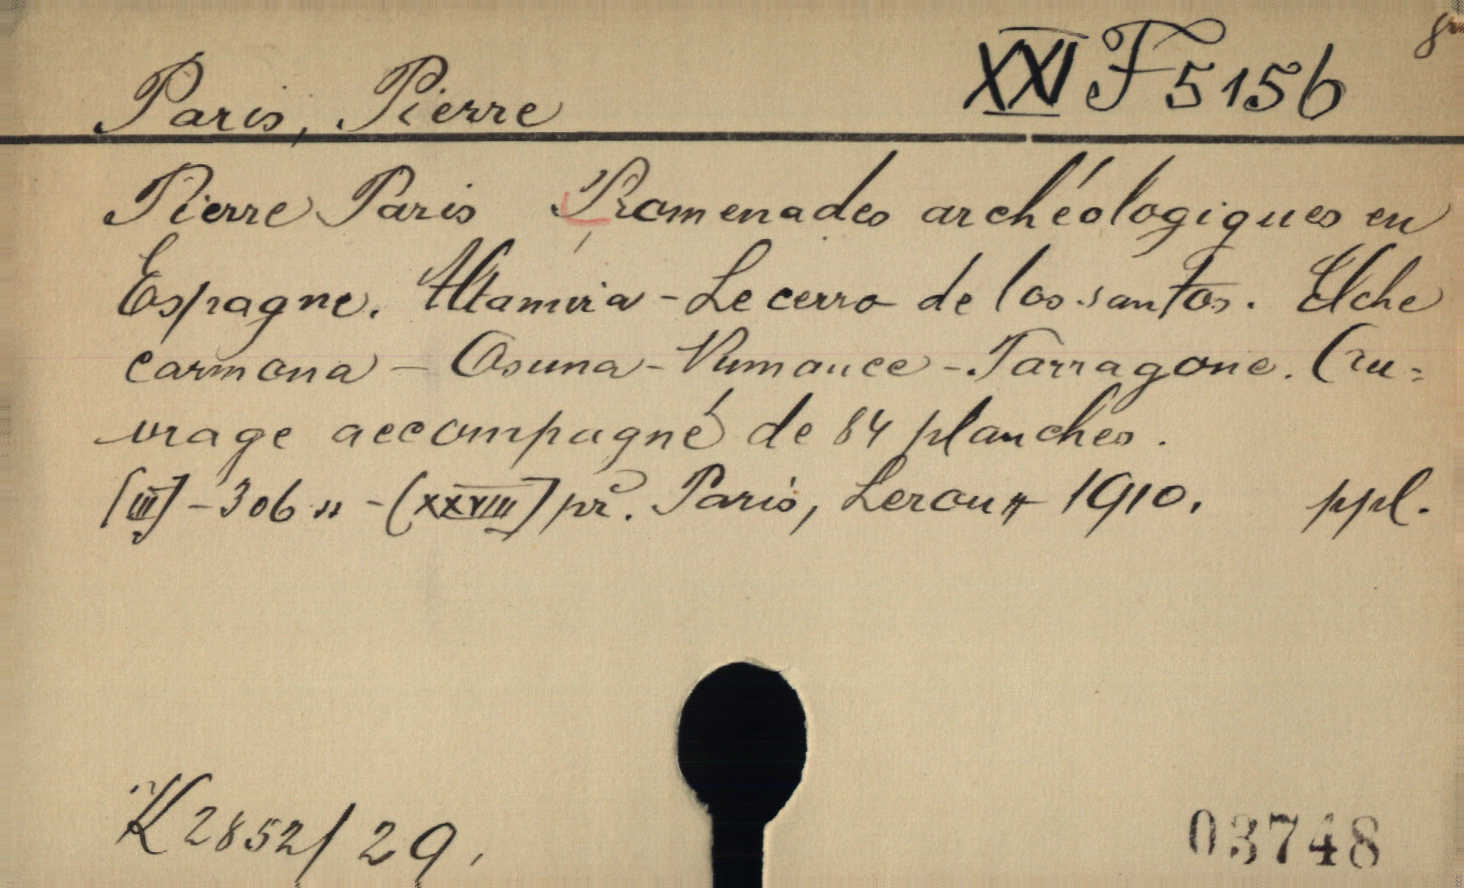 XXI F 5156
Paris, Pierre
Pierre Paris Promenades archéologiques en
Espagne. Altamira - Le cerro de los santos. Elche
carmona - Osuna - Numance - Tarragone. Ou=
vrage accompagné de 84 planches.
[III] - 306 " - (XXVIII] pr. Paris, Leroux 1910. ppl.
K 2852/29.
03748